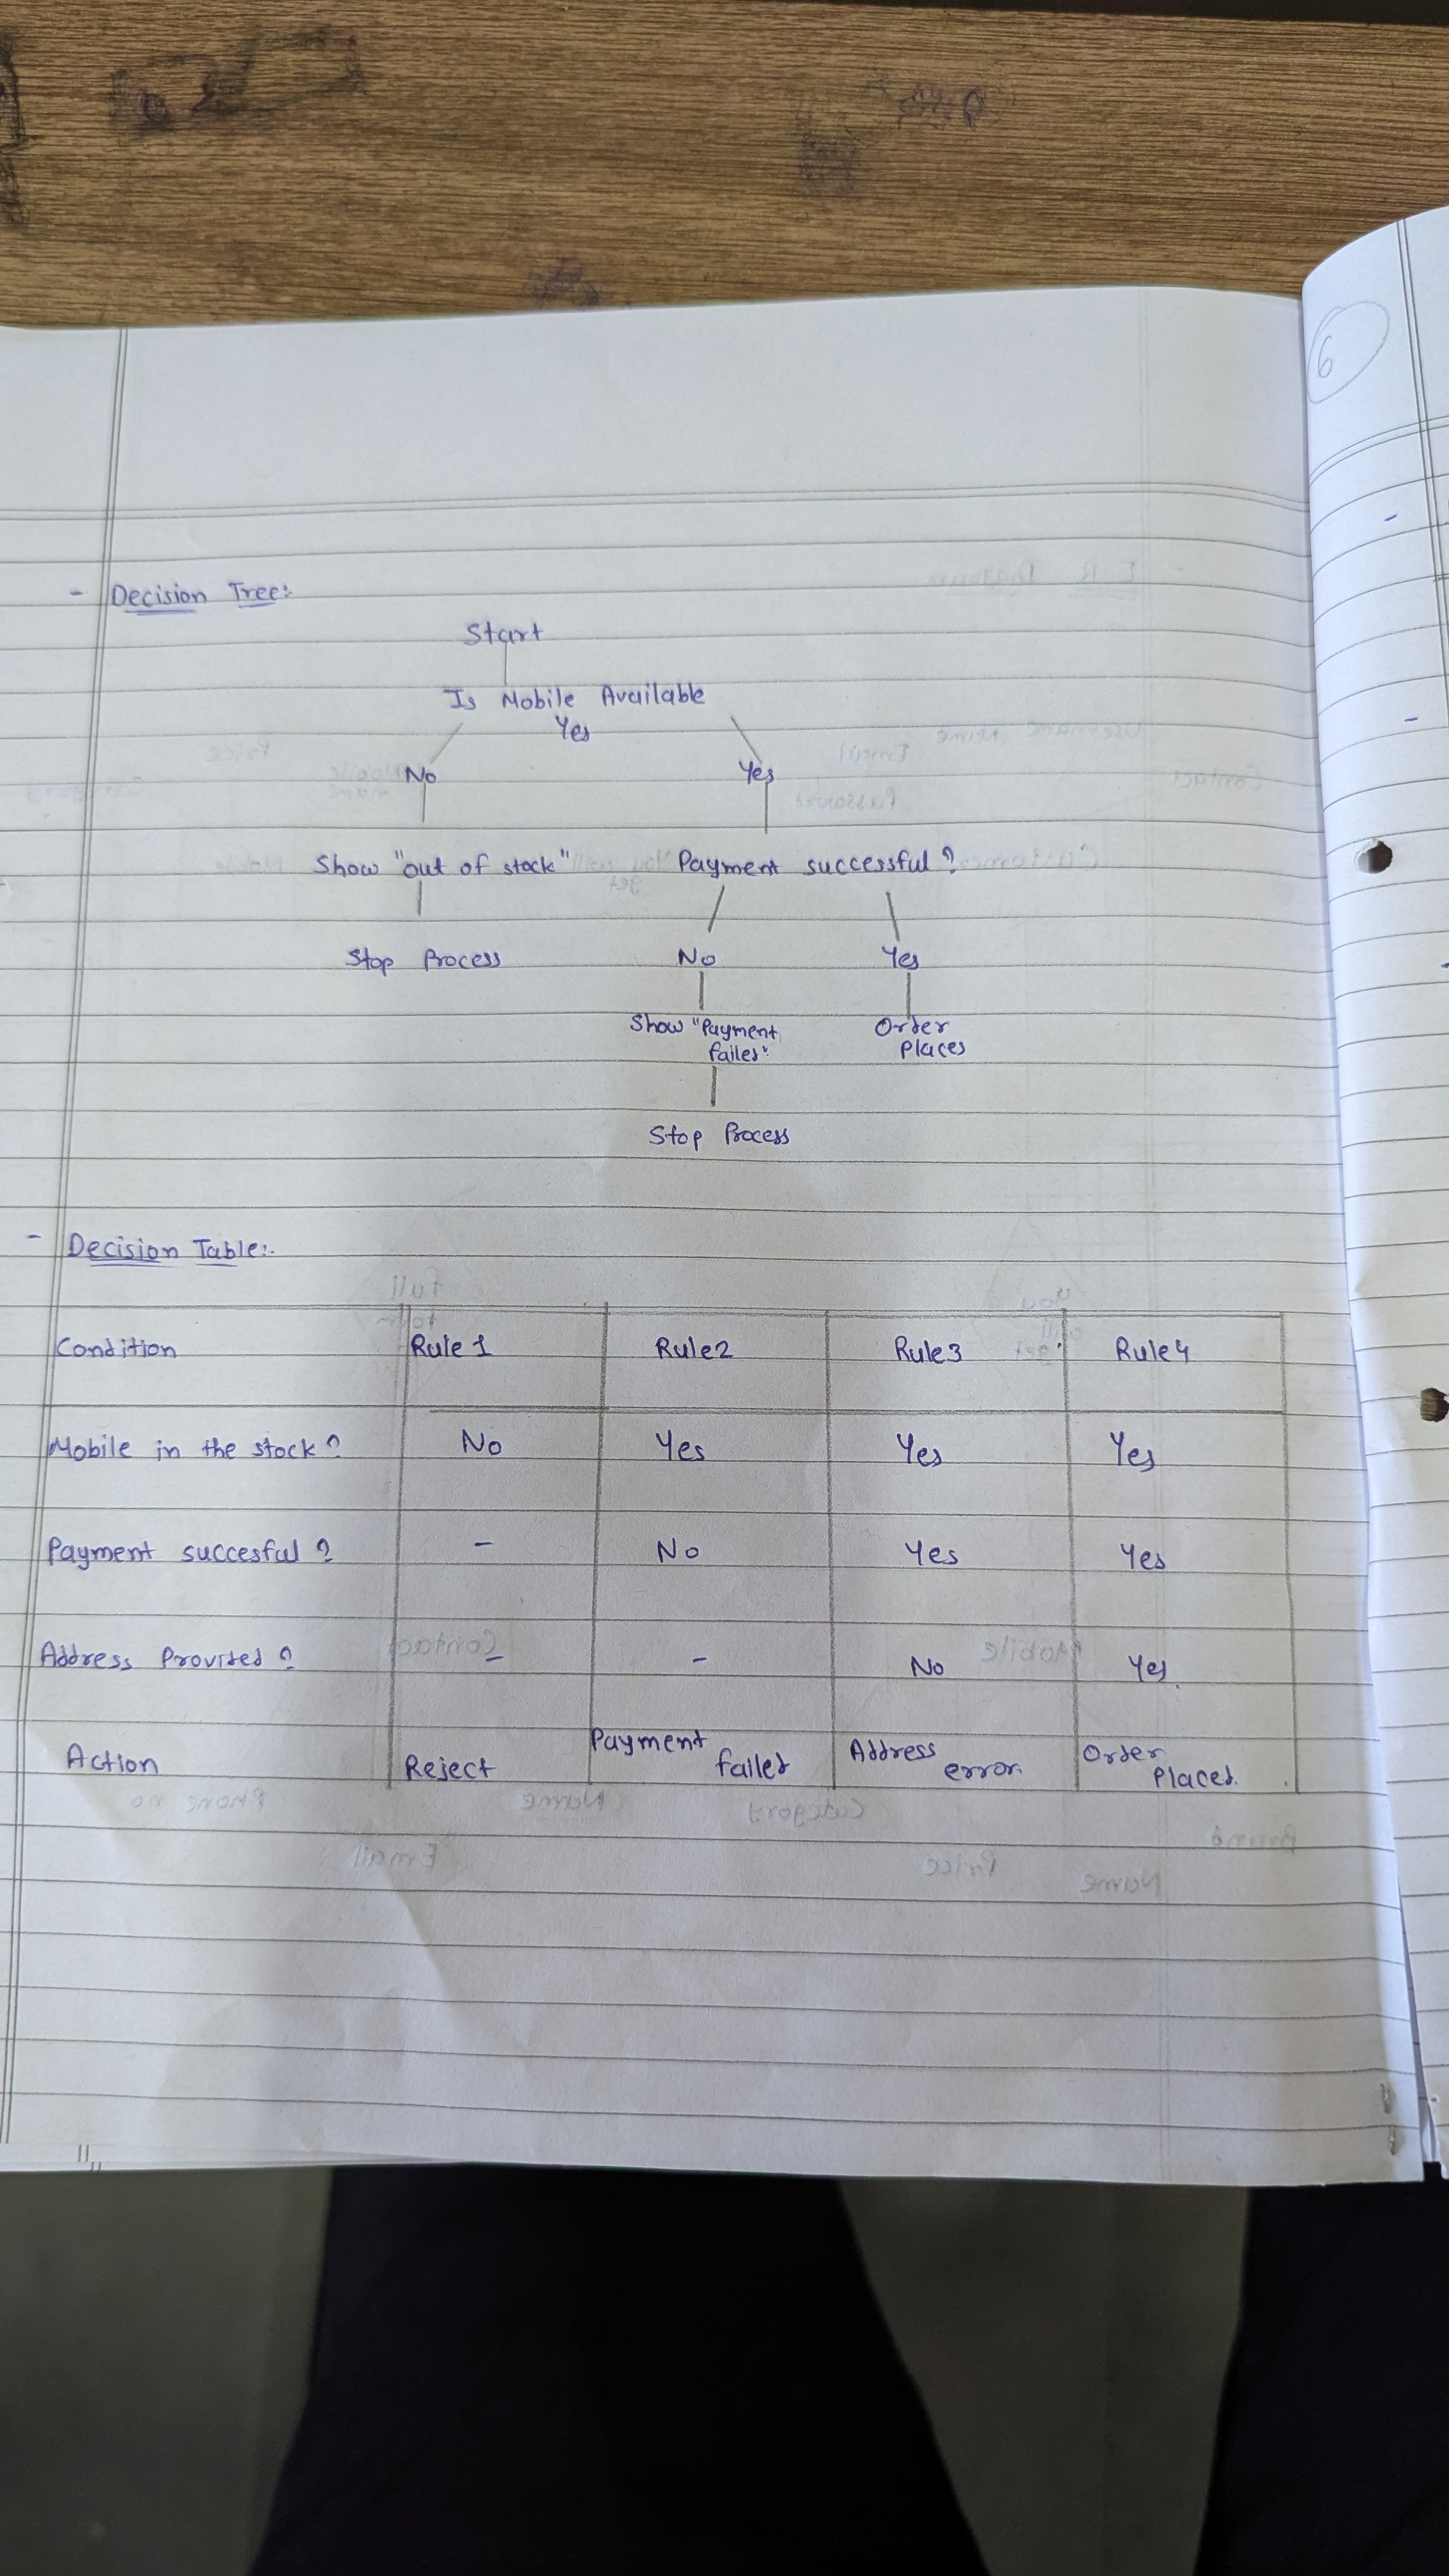 6
- Decision Tree:-
Start
Is Mobile Available
Yes
No Yes
Show "out of stock" Payment successful ?
Stop Process No Yes
Show "Payment Order
failed". Places
Stop Process
- Decision Table:-
Condition Rule 1 Rule2 Rule3 Rule4
Mobile in the stock? No Yes Yes Yes
Payment succesful ? - No Yes Yes
Address Provided ? - - No Yes.
Action Reject Payment failed Address error. Order Placed.